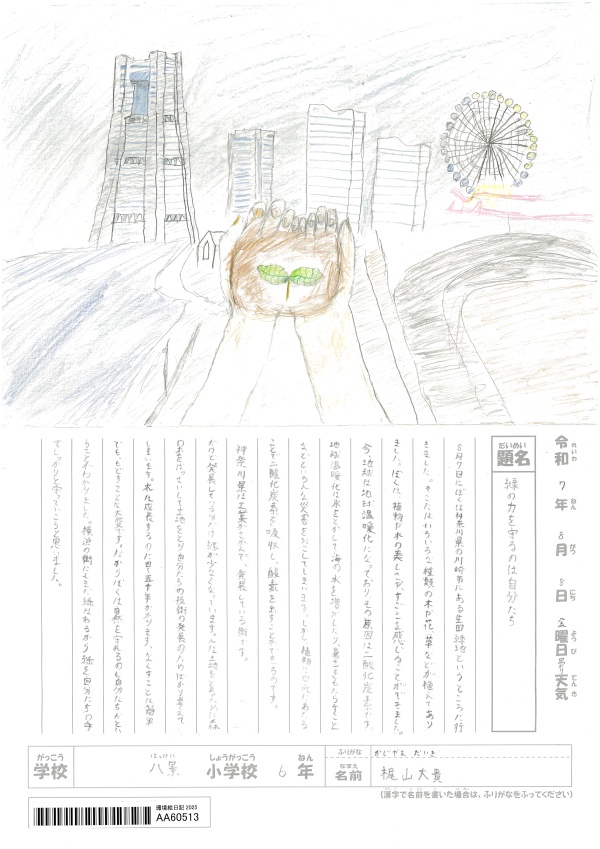 令和 7年 8月 8日 金曜日 天気
れいわ ねん がつ にち ようび てんき
だいめい
題名
緑の力を守るのは自分たち
8月7日にぼくは神奈川県の川崎市にある生田緑地というところに行
きました。そこにはいろいろな種類の木や花、草などが植えてあり
ました。ぼくは、植物や木の美しさや、すごさを感じることができました。
今、地球は地球温暖化になっておりその原因は二酸化炭素です。
地球温暖化は氷をとかして海の水を増やしたり、暑さをもたらすこと
などといろんな災害をおこしてしまいます。しかし、植物には
ことで二酸化炭素を吸収し、酸素を出すことができるのです。
神奈川県は工業がさかんで、発展している街です。
だけど発展している分だけ緑が少なくなっています。人は土地をとるため森
の木をばっさいして土地をとり自分たちの技術の発展のためばかり考えて
しまいます。木は成長するのに四〜五十年かかります。なくすことは簡単
でも、もどすことは大変です。だからぼくは自然を守れるのも自分たちだとい
うことがわかりました。横浜の街にもまだ緑はあるから緑を自分たちの手
でしっかりと守っていこうと思いました。
がっこう はっけい しょうがっこう ねん
学校 八景 小学校 6年
ふりがな かじやま だいき
なまえ
名前 梶山大貴
(漢字で名前を書いた場合は、ふりがなをふってください)
環境絵日記 2025
AA60513